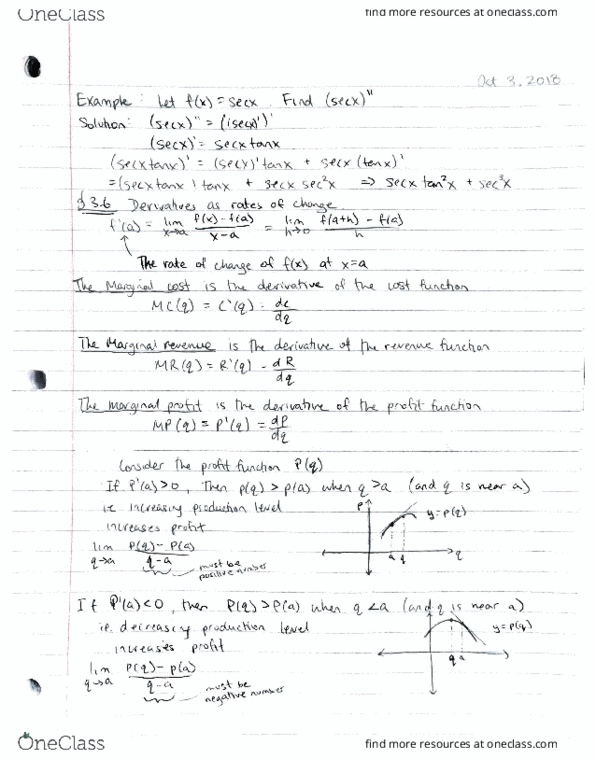 OneClass
find more resources at oneclass.com
Oct 3, 2018
Example: Let f(x) = secx. Find (secx)"
Solution: (secx)" = ((secx)')'
(secx)' = secxtanx
(secxtanx)' = (secx)'tanx + secx(tanx)'
= (secxtanx) tanx + secx sec²x ⇒ secx tan²x + sec³x
§3.6 Derivatives as rates of change
f'(a) = lim x→a f(x) - f(a) / x-a = lim h→0 f(a+h) - f(a) / h
The rate of change of f(x) at x=a
The Marginal cost is the derivative of the cost function
MC(q) = C'(q) = dc/dq
The Marginal revenue is the derivative of the revenue function
MR(q) = R'(q) = dR/dq
The marginal profit is the derivative of the profit function
MP(q) = P'(q) = dP/dq
Consider the profit function P(q)
If P'(a)>0, Then p(q) > p(a) when q>a (and q is near a)
i.e. increasing production level
increases profit
P
y=P(q)
a q
q
lim q→a P(q) - P(a) / q-a
must be
positive number
If P'(a)<0, then P(q)>P(a) when q<a (and q is near a)
i.e. decreasing production level
increases profit
y=P(q)
q a
lim q→a P(q) - p(a) / q-a
must be
negative number
OneClass
find more resources at oneclass.com